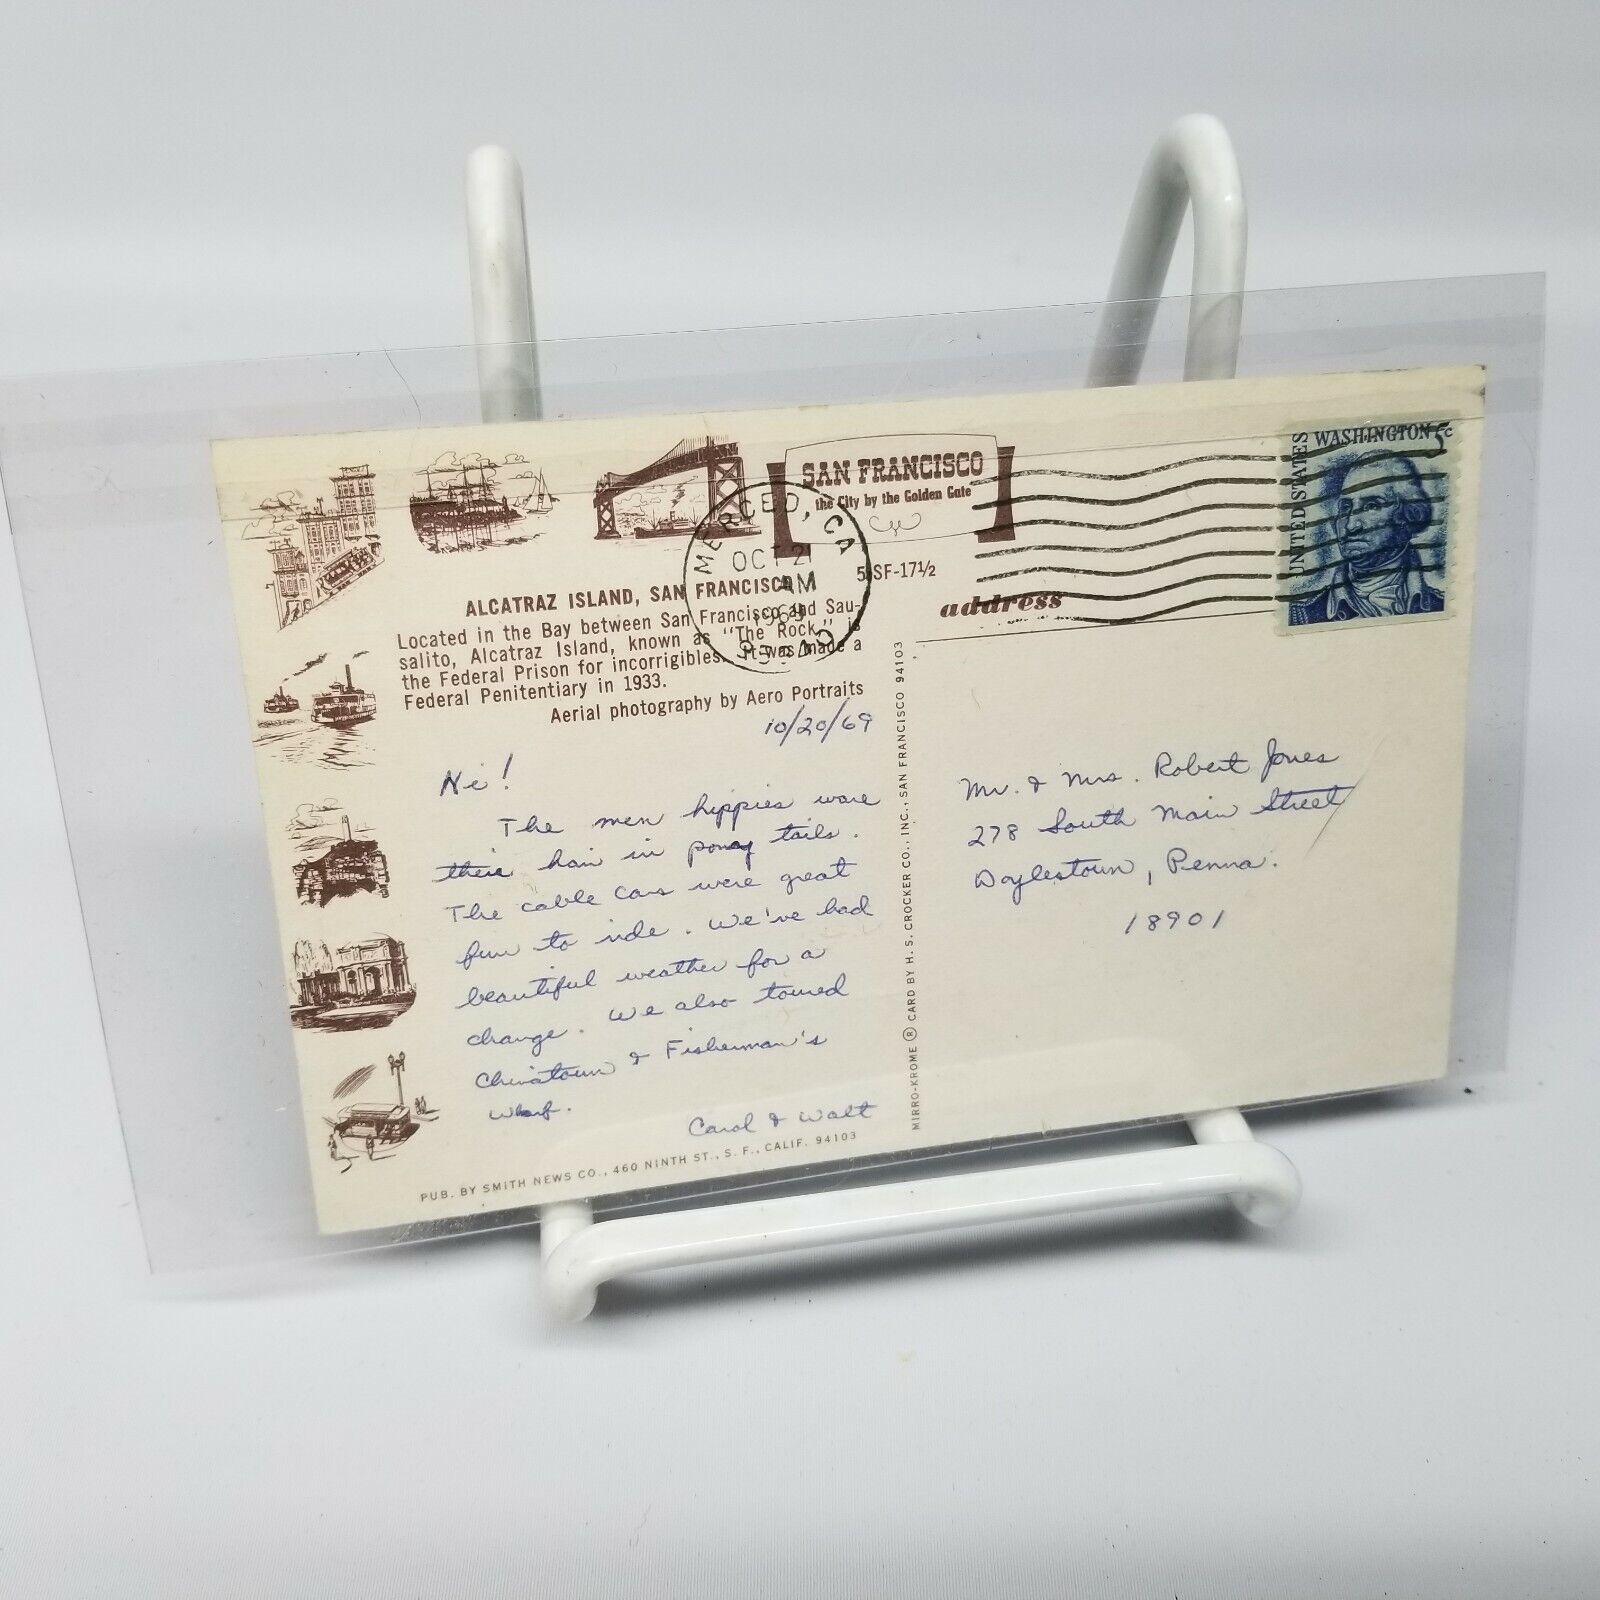 SAN FRANCISCO
the City by the Golden Gate
MERCED, CA
OCT 21
AM
1969
UNITED STATES
WASHINGTON 5c
5/SF-17½
ALCATRAZ ISLAND, SAN FRANCISCO
Located in the Bay between San Francisco and Sau-
salito, Alcatraz Island, known as "The Rock," is
the Federal Prison for incorrigibles. It was made a
Federal Penitentiary in 1933.
Aerial photography by Aero Portraits
10/20/69
Hi!
The men hippies ware
their hair in pony tails.
The cable cars were great
fun to ride. We've had
beautiful weather for a
change. We also toured
Chinatown & Fisherman's
Wharf.
Carol & Walt
PUB. BY SMITH NEWS CO., 460 NINTH ST., S. F., CALIF. 94103
MIRRO-KROME ® CARD BY H. S. CROCKER CO., INC., SAN FRANCISCO 94103
address
Mr. & Mrs. Robert Jones
278 South Main Street
Doylestown, Penna.
18901